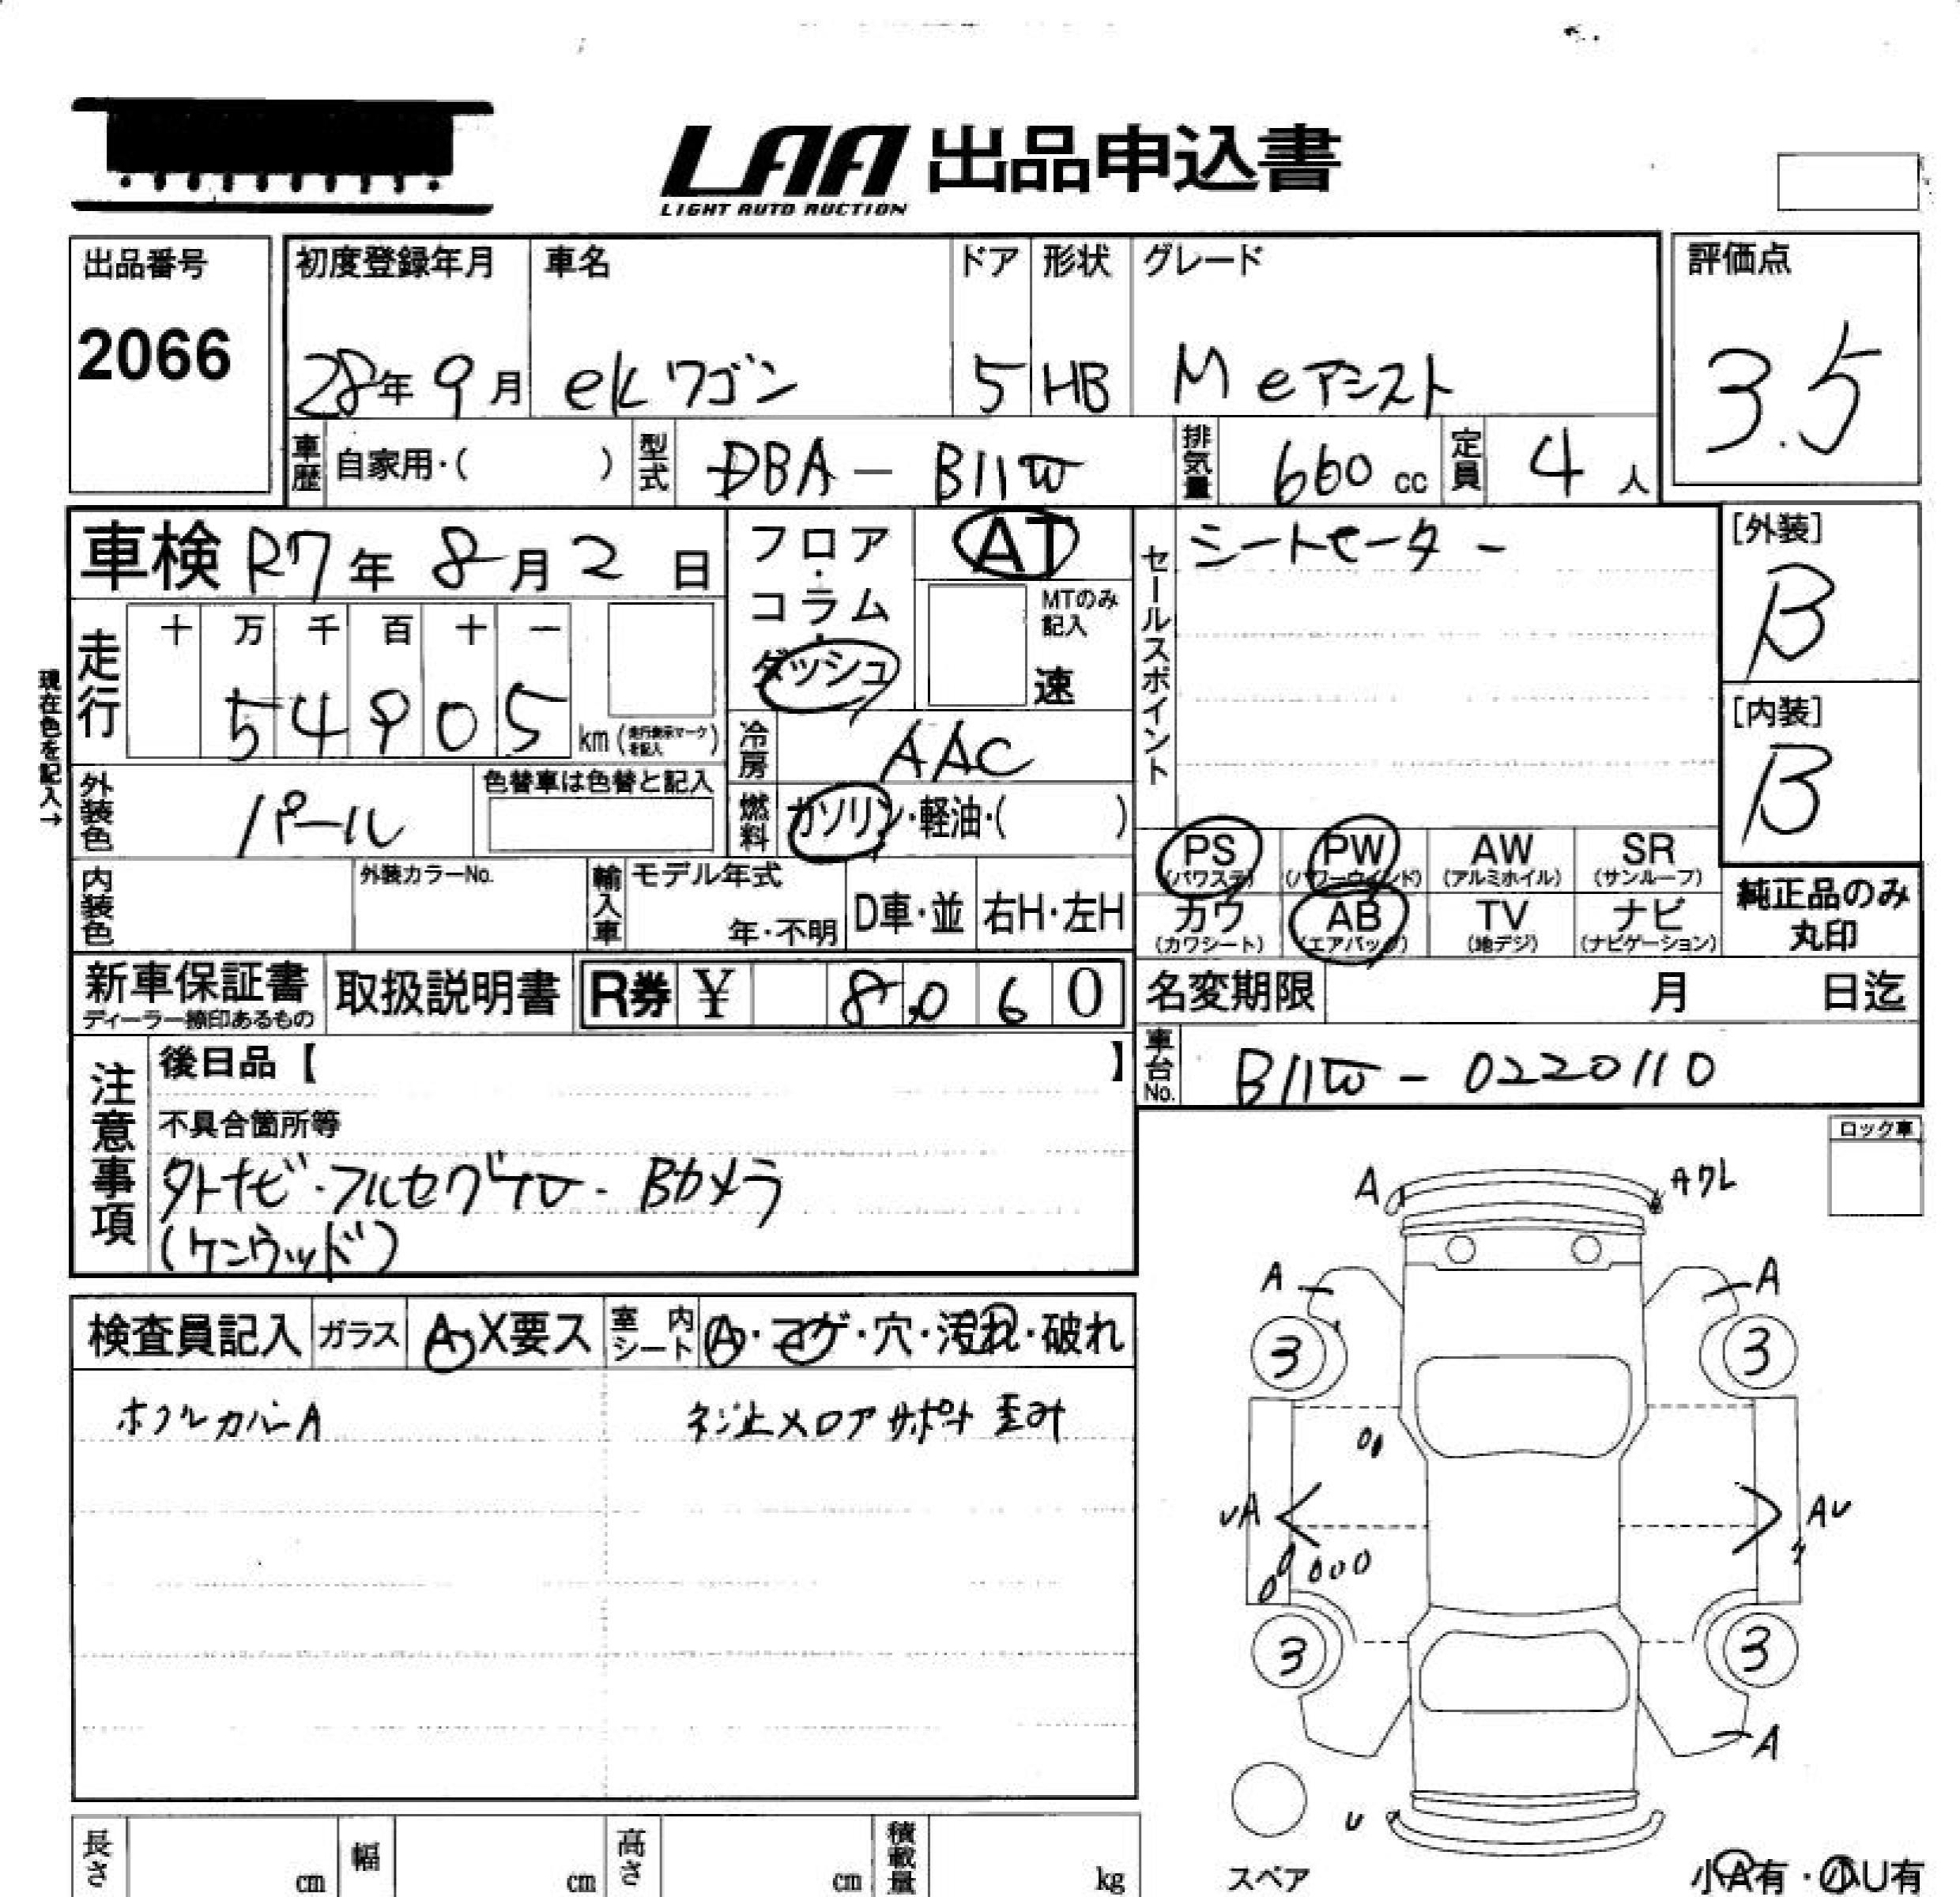 LAA 出品申込書
LIGHT AUTO AUCTION
出品番号
2066
初度登録年月
28年 9月
車名
ekワゴン
ドア
5
形状
HB
グレード
M eアシスト
評価点
3.5
車歴 自家用・( )
型式 DBA - B11W
排気量 660 cc
定員 4 人
車検 R7年 8月 2日
フロア・コラム・ダッシュ
AT
MTのみ記入
速
セールスポイント
シートヒーター
[外装]
B
[内装]
B
現在色を記入→
走行
十 万 千 百 十 一
5 4 9 0 5 km (走行表示マークを記入)
冷房 AAC
外装色 パール
色替車は色替と記入
燃料 ガソリン・軽油・( )
PS (パワステ)
PW (パワーウインド)
AW (アルミホイル)
SR (サンルーフ)
カワ (カワシート)
AB (エアバック)
TV (地デジ)
ナビ (ナビゲーション)
純正品のみ丸印
内装色
外装カラーNo.
輸入車 モデル年式
年・不明
D車・並
右H・左H
新車保証書
ディーラー捺印あるもの
取扱説明書
R券 ¥ 8,060
名変期限 月 日迄
車台No. B11W - 0220110
注意事項
後日品【 】
不具合箇所等
外ナビ・フルセグ・Bカメラ
(ケンウッド)
ロック車
検査員記入
ガラス A・X要ス
室内シート A・コゲ・穴・汚れ・破れ
ホイルカバーA
ネジ止メロアサポート歪み
A
Aワレ
A
A
3
3
UA
AU
3
3
A
U
スペア
小A有・小U有
長さ cm
幅 cm
高さ cm
積載量 kg